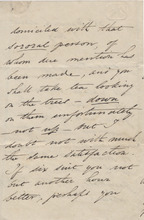 domiciled with that
sororal person of
whom due mention has
been made, and you
shall take tea looking
on the trees – down
on them unfortunately
– not up – but I
doubt not with much
the same satisfaction.
If six suit you not
but another hour
better, perhaps you